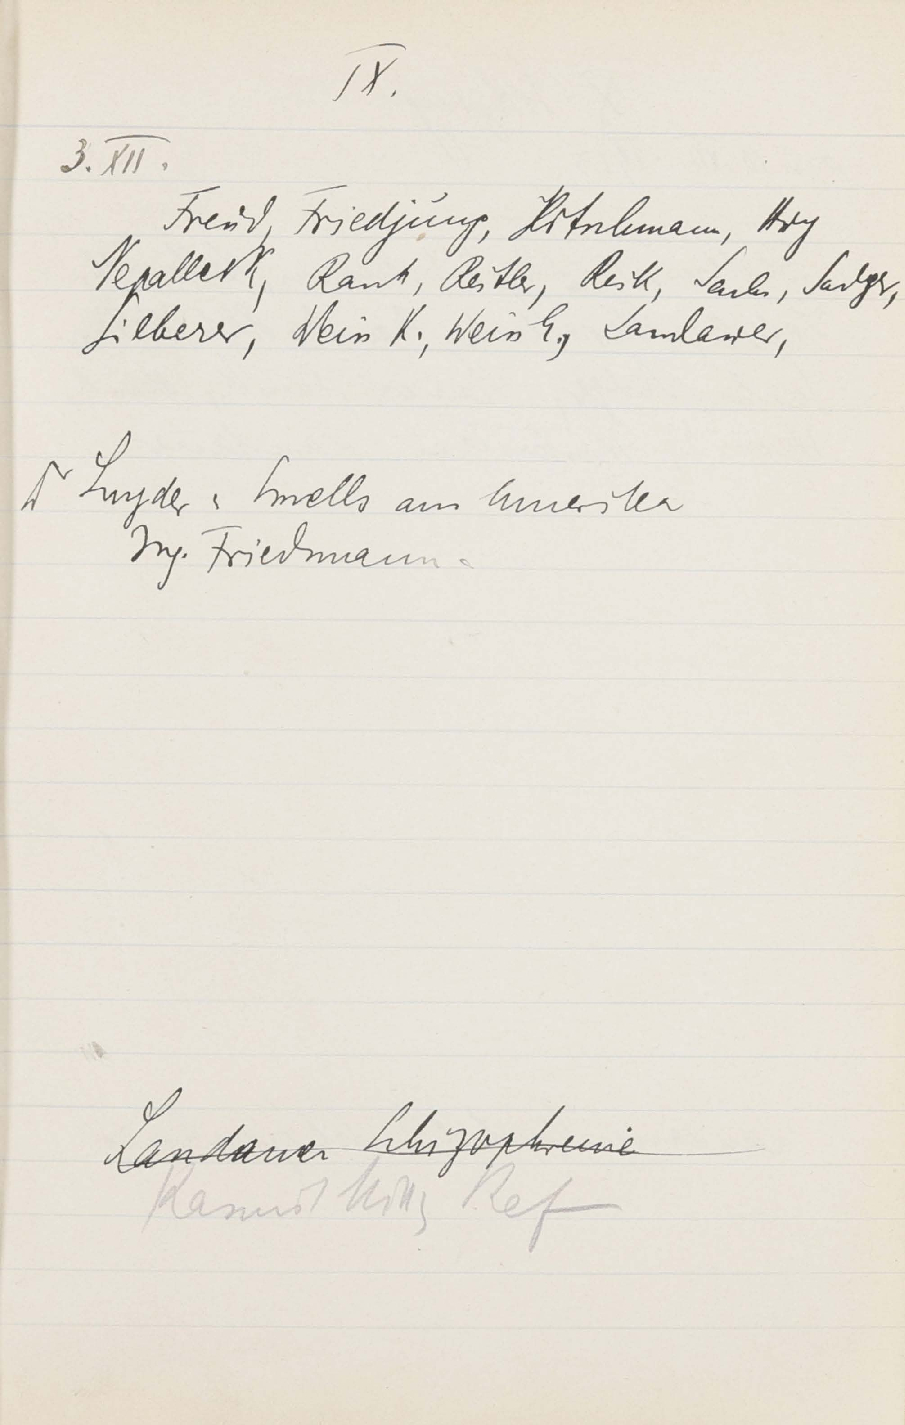 IX.
3. XII.
Freud, Friedjung, Hitschmann, Hug
Nepalleck, Rank, Reitler, Reik, Sachs, Sadger,
Silberer, Weiss K., Weiss E., Landauer,
Dr Snyder u Smells aus Amerika
Ing. Friedmann
Landauer Schizophrenie
Ref